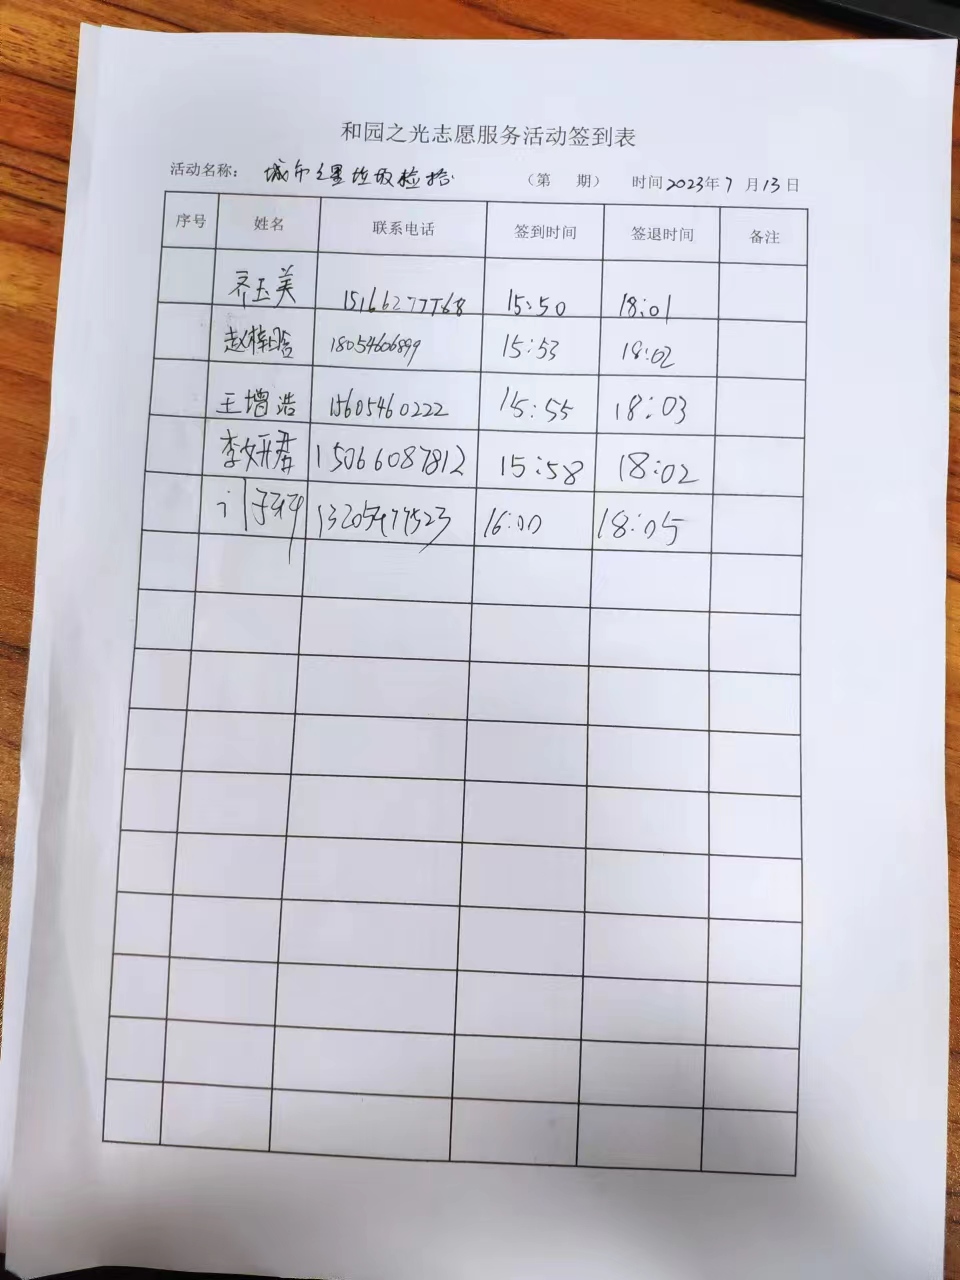 和园之光志愿服务活动签到表
活动名称： 城市之星垃圾检拾 （第 期） 时间2023年7月13日
序号 姓名 联系电话 签到时间 签退时间 备注
齐玉美 15:50 18:01
赵梓晗 18054606899 15:53 18:02
王增浩 15605460222 15:55 18:03
李妍君 15066087812 15:58 18:02
16:00 18:05